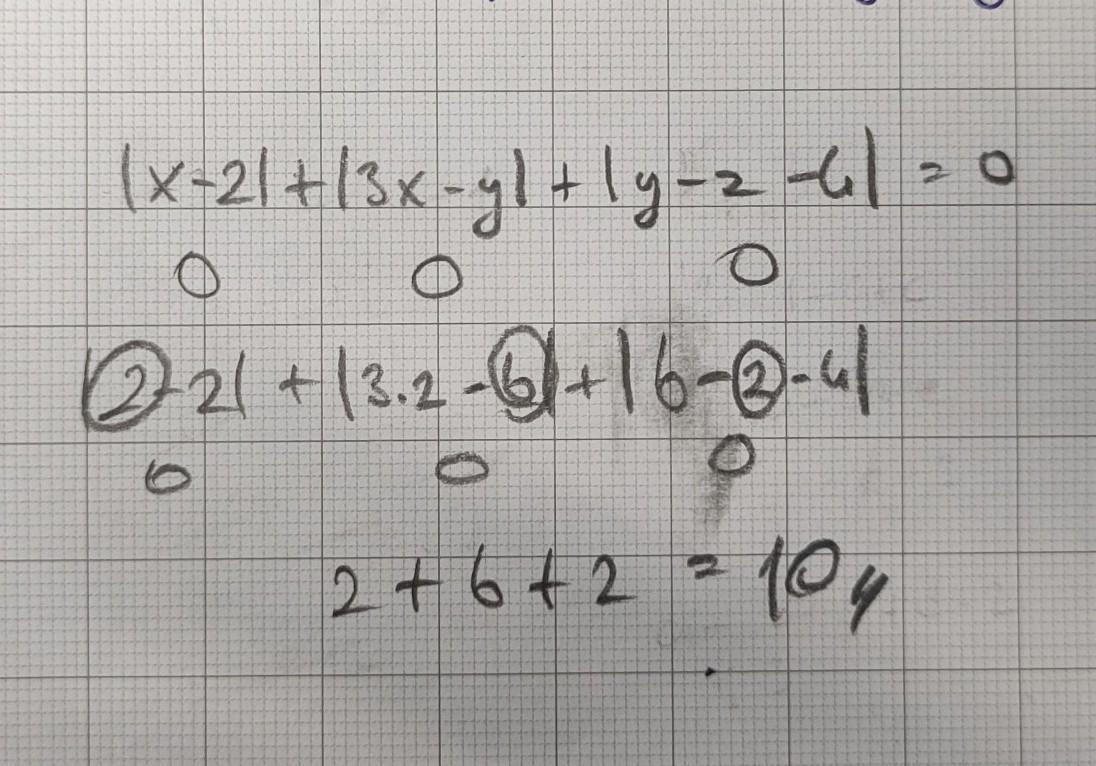 |x-2|+|3x-y|+|y-z-4|=0
0 0 0
|2-2|+|3.2-6|+|6-2-4|
0 0 0
2+6+2=10//